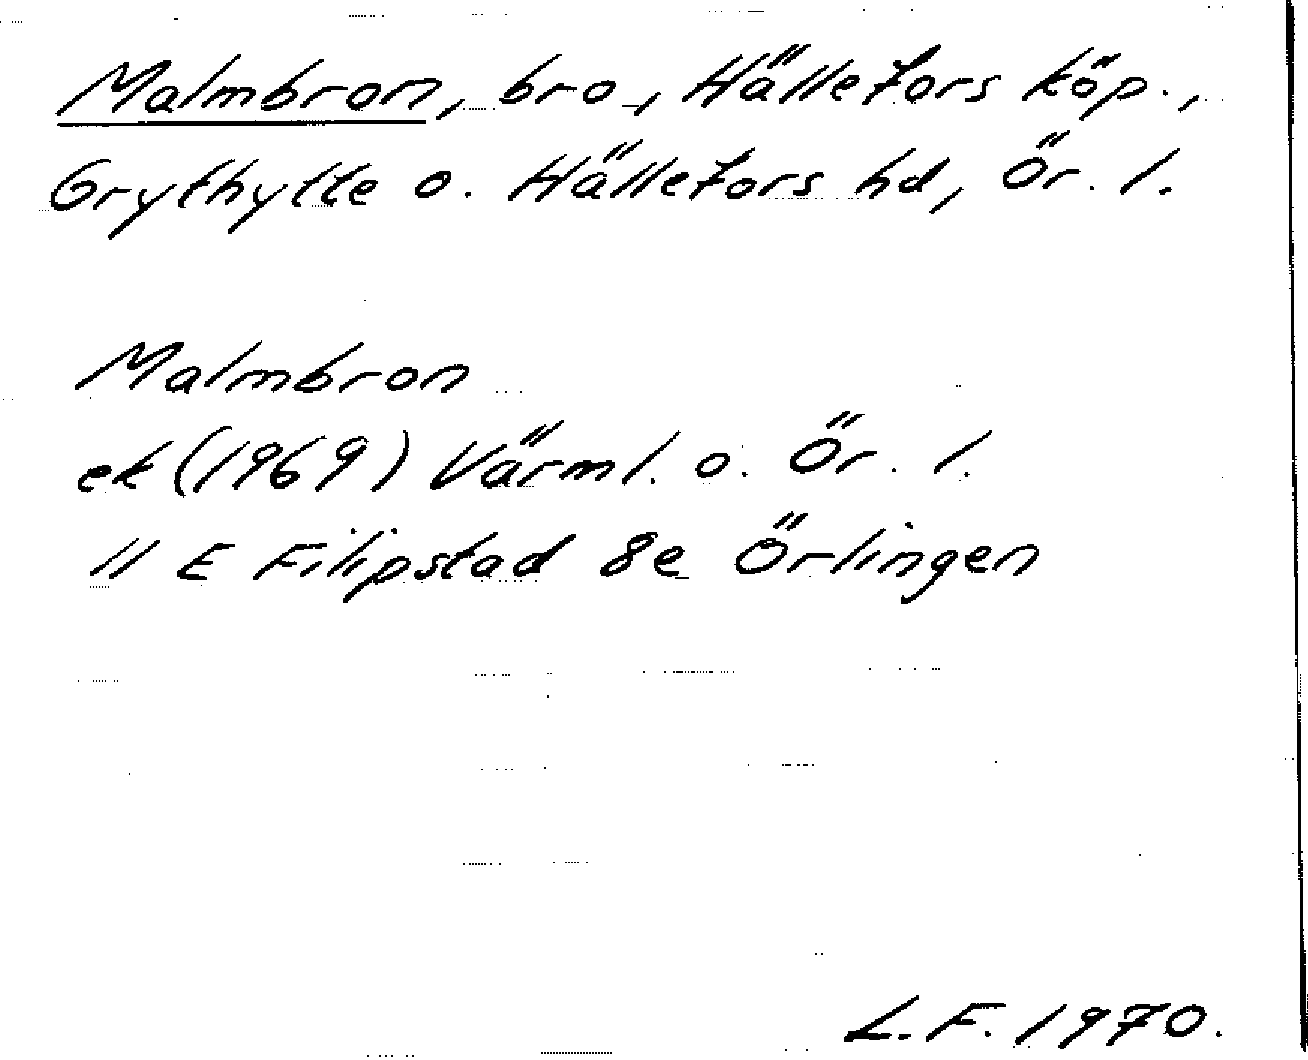 Malmbron, bro, Hällefors köp.,
Grythytte o. Hällefors hd, Ör. l.
Malmbron
ek (1969) Värml. o. Ör. l.
11 E Filipstad 8e Örlingen
L.F. 1970.